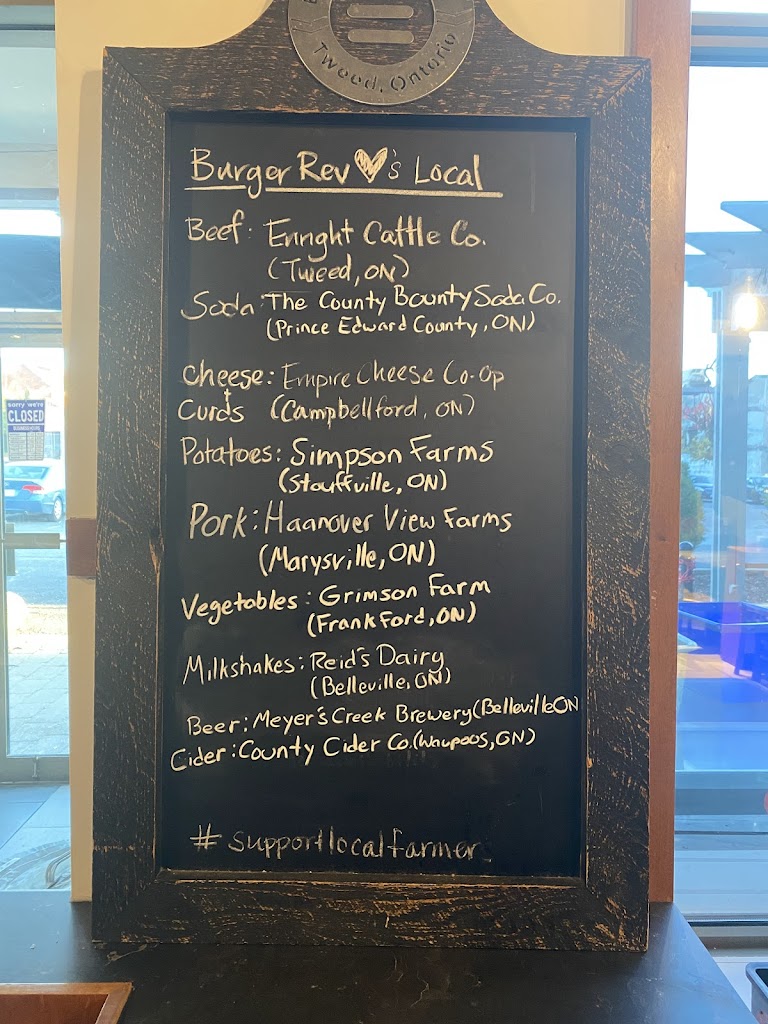 Tweed, Ontario
Burger Rev ♥'s Local
Beef: Enright Cattle Co.
(Tweed, ON)
Soda: The County Bounty Soda Co.
(Prince Edward County, ON)
Cheese: Empire Cheese Co-Op
+
Curds (Campbellford, ON)
Potatoes: Simpson Farms
(Stouffville, ON)
Pork: Haanover View Farms
(Marysville, ON)
Vegetables: Grimson Farm
(Frankford, ON)
Milkshakes: Reid's Dairy
(Belleville, ON)
Beer: Meyer's Creek Brewery (Belleville ON
Cider: County Cider Co. (Waupoos, ON)
#supportlocalfarmer
sorry we're
CLOSED